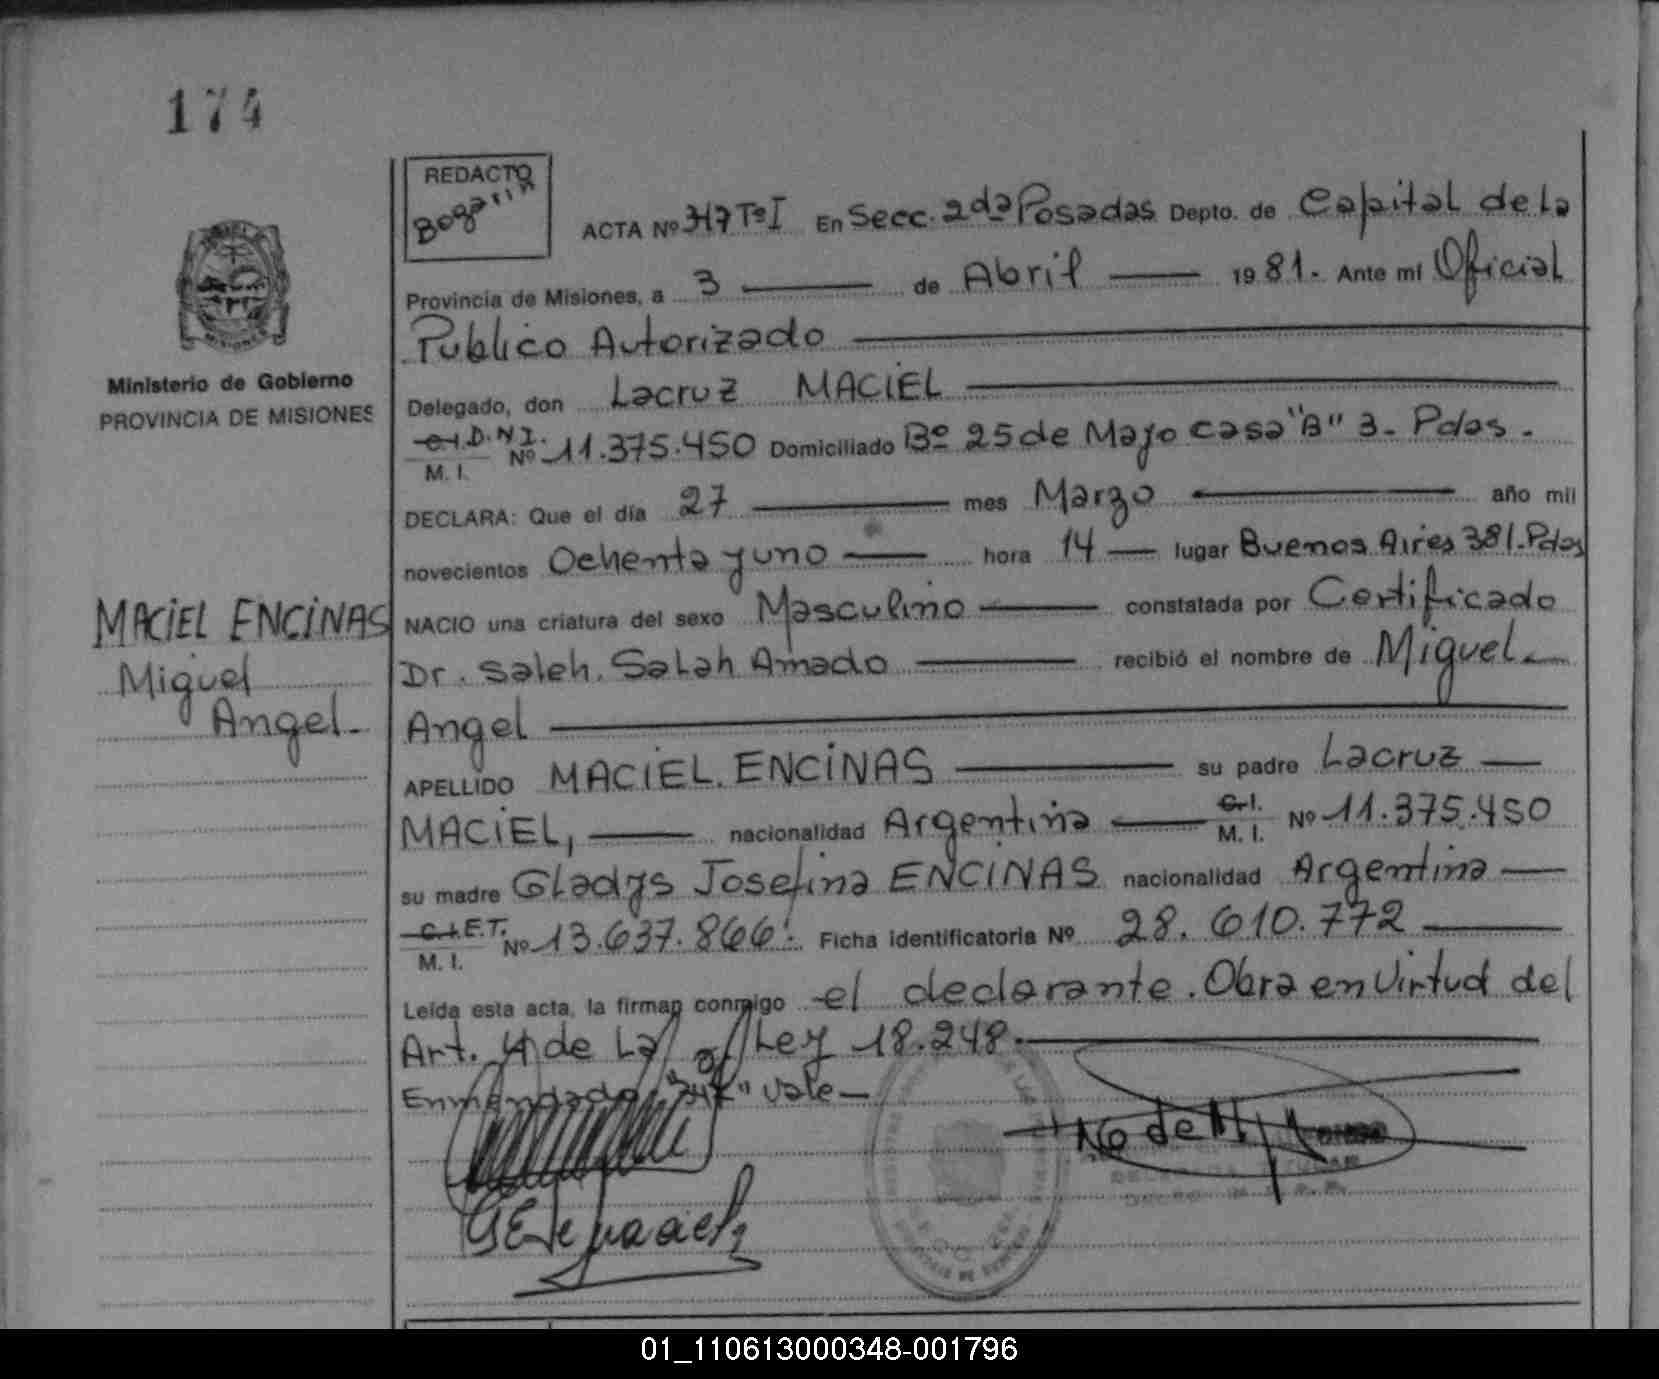 174
REDACTO
Bogarin
ACTA Nº 347 Tº I En Secc. 2da Posadas Depto. de Capital de la
Provincia de Misiones, a 3 de Abril 1981. Ante mí Oficial
Publico Autorizado
Ministerio de Gobierno
PROVINCIA DE MISIONES
Delegado, don Lacruz MACIEL
C.I. D.N.I.
M. I.
Nº 11.375.450 Domiciliado Bº 25 de Mayo casa "B" 3 - Pdas.
DECLARA: Que el día 27 mes Marzo año mil
novecientos Ochenta y uno hora 14 lugar Buenos Aires 381.Pdas
MACIEL ENCINAS
Miguel
Angel.
NACIO una criatura del sexo Masculino constatada por Certificado
Dr. Saleh. Salah Amado recibió el nombre de Miguel
Angel
APELLIDO MACIEL. ENCINAS su padre Lacruz
MACIEL, nacionalidad Argentina C.I. M. I. Nº 11.375.450
su madre Gladys Josefina ENCINAS nacionalidad Argentina
C.I. E.T.
M. I.
Nº 13.637.866. Ficha identificatoria Nº 28.610.772
Leída esta acta, la firman conmigo el declarante. Obra en Virtud del
Art. 4 de La Ley 18.248.
Enmendado "347" Vale
01_110613000348-001796